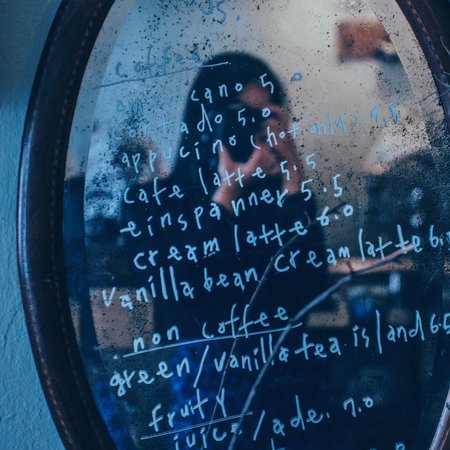 coffee
cano 5.0
cortado 5.0
appucino (hot only) 5.5
cafe latte 5.5
einspanner 5.5
cream latte 6.0
vanilla bean cream latte 6.
non coffee
green/vanilla tea island 6.5
fruity
juice/ade. 7.0